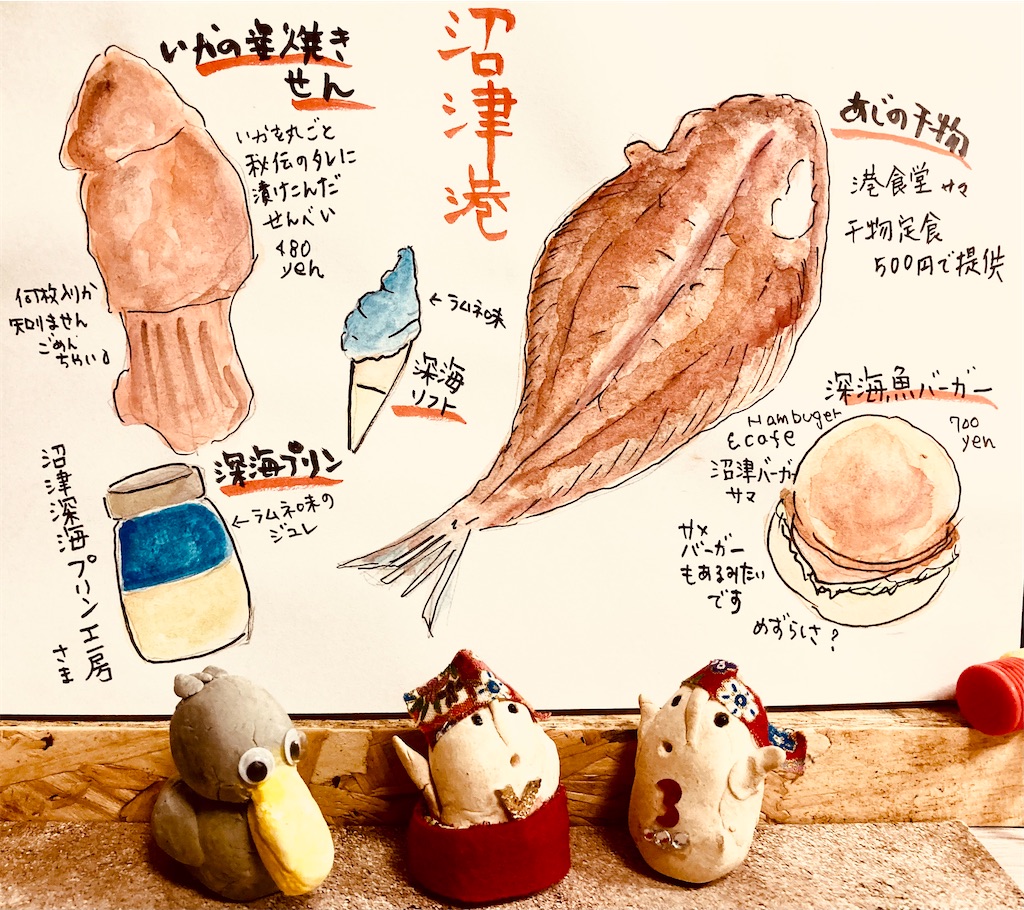 沼津港
いかの姿焼き
せん
いかを丸ごと
秘伝のタレに
漬けたんだ
せんべい
480
yen
何枚入りか
知りません
ごめん
ちゃい。
←ラムネ味
深海
ソフト
深海プリン
←ラムネ味の
ジュレ
沼津深海プリン工房
さま
あじの干物
港食堂 サマ
干物定食
500円で提供
深海魚バーガー
700
yen
Hambuger
& cafe
沼津バーガー
サマ
サメ
バーガー
もあるみたい
です
めずらしさ?